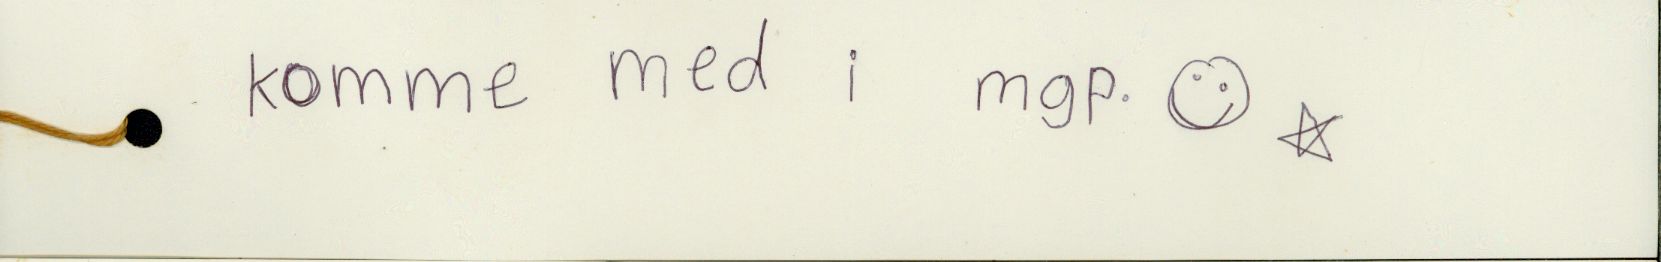 komme med i mgp.